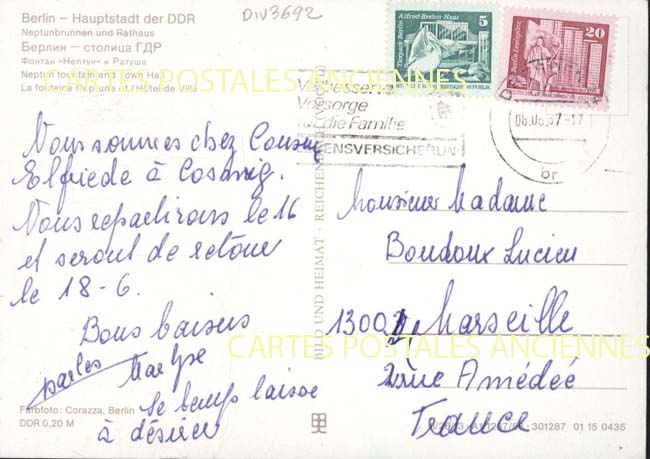 Berlin – Hauptstadt der DDR
Neptunbrunnen und Rathaus
Берлин – столица ГДР
Фонтан «Нептун» и Ратуша
Neptun fountain and Town Hall
La fontaine Neptune et l'Hôtel de Ville
DIV3692
Alfred-Brehm-Haus
Tierpark Berlin
5
20
Verbesserte
Vorsorge
für die Familie
LEBENSVERSICHERUNG
08.06.87-17
br
CARTES POSTALES ANCIENNES
Nous sommes chez Cousine
Elfriede à Coswig.
Nous repartirons le 16
et seront de retour
le 18-6.
Bons baisers
Le temps laisse
à désirer
BILD UND HEIMAT · REICHENBACH
Monsieur Madame
Boudoux Lucien
Marseille
2 rue Amédée
France
CARTES POSTALES ANCIENNES
Farbfoto: Corazza, Berlin
DDR 0,20 M
301287 01 15 0435